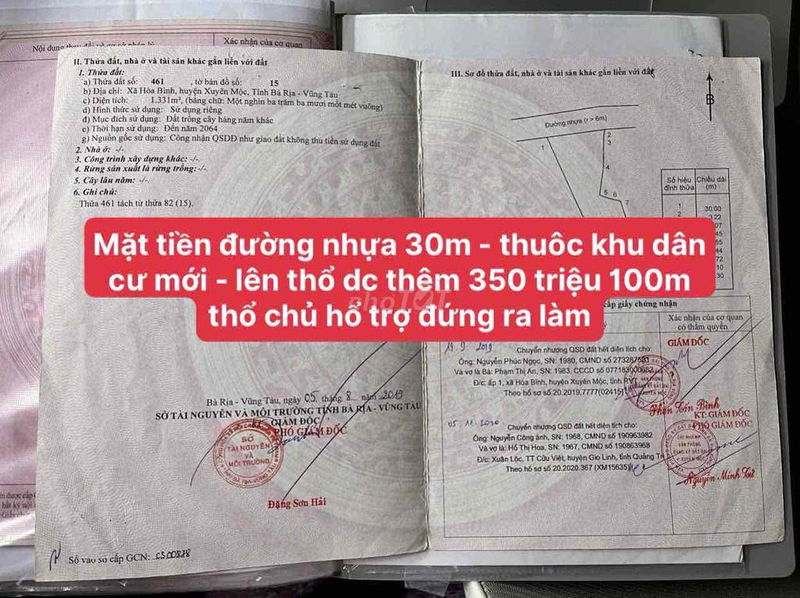 Nội dung thay đổi và cơ sở pháp lý
Xác nhận của cơ quan
II. Thửa đất, nhà ở và tài sản khác gắn liền với đất
1. Thửa đất:
a) Thửa đất số: 461, tờ bản đồ số: 15
b) Địa chỉ: Xã Hòa Bình, huyện Xuyên Mộc, Tỉnh Bà Rịa - Vũng Tàu
c) Diện tích: 1.331m², (bằng chữ: Một nghìn ba trăm ba mươi mốt mét vuông)
d) Hình thức sử dụng: Sử dụng riêng
đ) Mục đích sử dụng: Đất trồng cây hàng năm khác
e) Thời hạn sử dụng: Đến năm 2064
g) Nguồn gốc sử dụng: Công nhận QSDĐ như giao đất không thu tiền sử dụng đất
2. Nhà ở: -/-
3. Công trình xây dựng khác: -/-
4. Rừng sản xuất là rừng trồng: -/-
5. Cây lâu năm: -/-
6. Ghi chú:
Thửa 461 tách từ thửa 82 (15).
III. Sơ đồ thửa đất, nhà ở và tài sản khác gắn liền với đất
B
Đường nhựa (r > 6m)
1
2
3
4
5
6
7
Số hiệu đỉnh thửa
Chiều dài (m)
1 30.00
2
Mặt tiền đường nhựa 30m - thuôc khu dân
cư mới - lên thổ dc thêm 350 triệu 100m
thổ chủ hổ trợ đứng ra làm
chợTỐT
cấp giấy chứng nhận
Xác nhận của cơ quan
có thẩm quyền
Chuyển nhượng QSD đất hết diện tích cho:
Ông: Nguyễn Phúc Ngọc, SN: 1980, CMND số
Và vợ là Bà: Phạm Thị An, SN: 1983, CCCD số
Đ/c: ấp 1, xã Hòa Bình, huyện Xuyên Mộc, tỉnh
Theo hồ sơ số 20.2019.7777
GIÁM ĐỐC
Phan Tấn Bình
05.11.2020
Chuyển nhượng QSD đất hết diện tích cho:
Ông: Nguyễn Công ánh, SN: 1968, CMND số 190963982
Và vợ là: Hồ Thị Hoa, SN: 1967, CMND số 190863968
Đ/c: Xuân Lộc, TT Cửu Việt, huyện Gio Linh, tỉnh Quảng Trị
Theo hồ sơ số 20.2020.367
KT: GIÁM ĐỐC
PHÓ GIÁM ĐỐC
Nguyễn Minh
Bà Rịa - Vũng Tàu, ngày 05 tháng 8 năm 2019
SỞ TÀI NGUYÊN VÀ MÔI TRƯỜNG TỈNH BÀ RỊA - VŨNG TÀU
GIÁM ĐỐC
PHÓ GIÁM ĐỐC
SỞ
TÀI NGUYÊN
VÀ
MÔI TRƯỜNG
Đặng Sơn Hải
Số vào sổ cấp GCN: